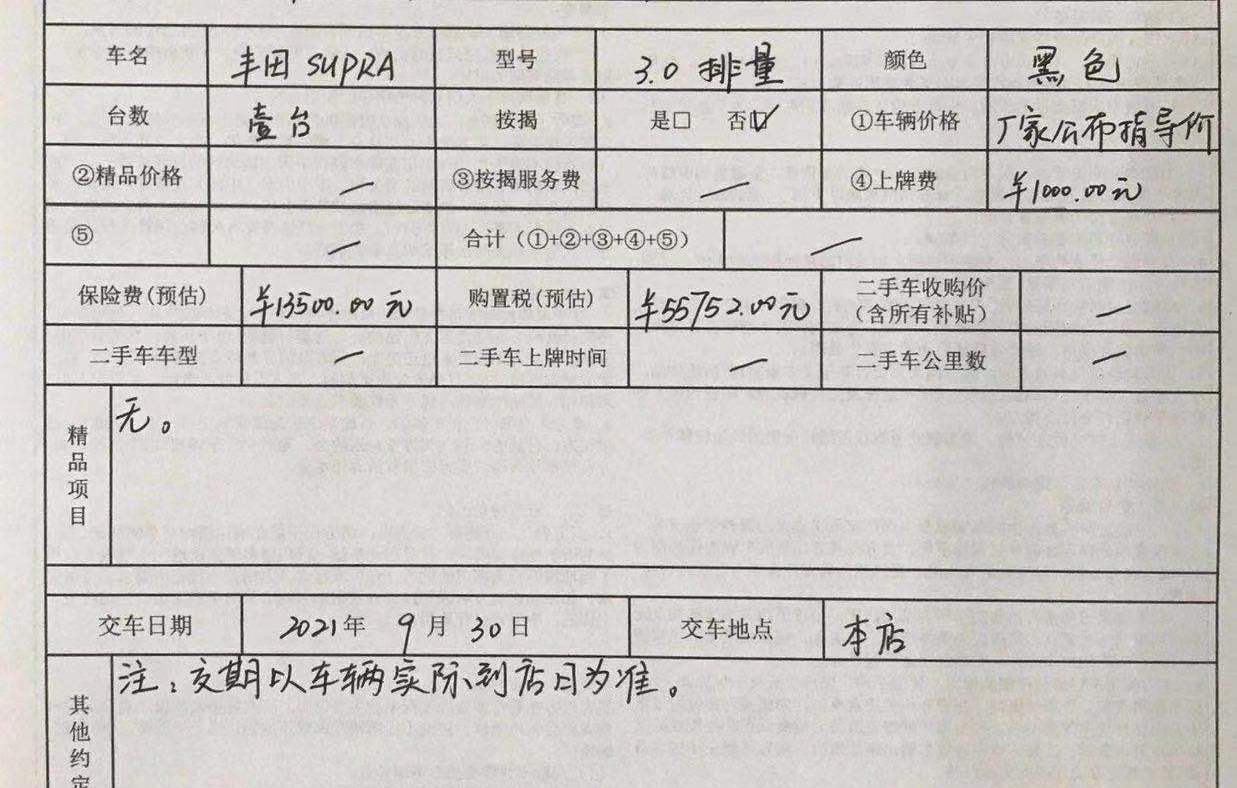 车名 丰田 SUPRA 型号 3.0 排量 颜色 黑色
台数 壹台 按揭 是□ 否☑ ①车辆价格 厂家公布指导价
②精品价格 — ③按揭服务费 — ④上牌费 ¥1000.00元
⑤ — 合计（①+②+③+④+⑤） —
保险费(预估) ¥13500.00元 购置税(预估) ¥55752.00元 二手车收购价
(含所有补贴) —
二手车车型 — 二手车上牌时间 — 二手车公里数 —
精品项目 无。
交车日期 2021年 9月 30日 交车地点 本店
其他约定 注：交期以车辆实际到店日为准。